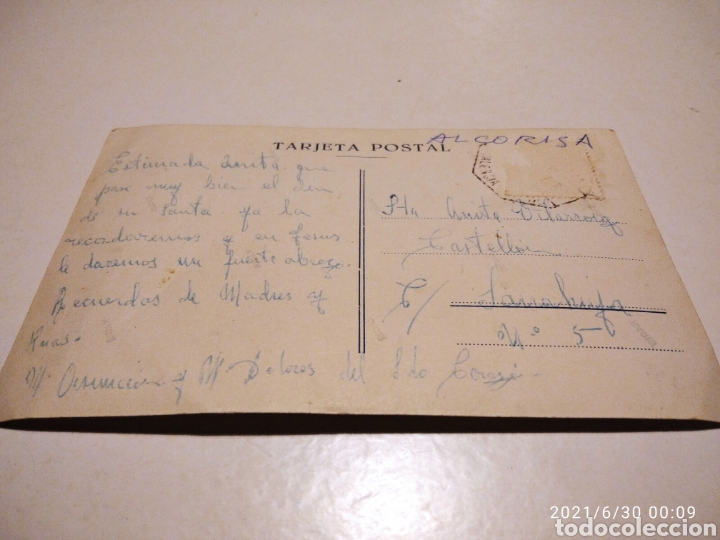 ALCORISA
TARJETA POSTAL
Estimada Anita que
pase muy bien el dia
de su Santa ya la
recordaremos y en
le daremos un fuerte abrazo.
Recuerdos de Madres y
Mª Asunción y Mª Dolores del Sdo Corazón
Sta Anita Vilarroig
Castellón
C/
Nº 5
2021/6/30 00:09
todocoleccion